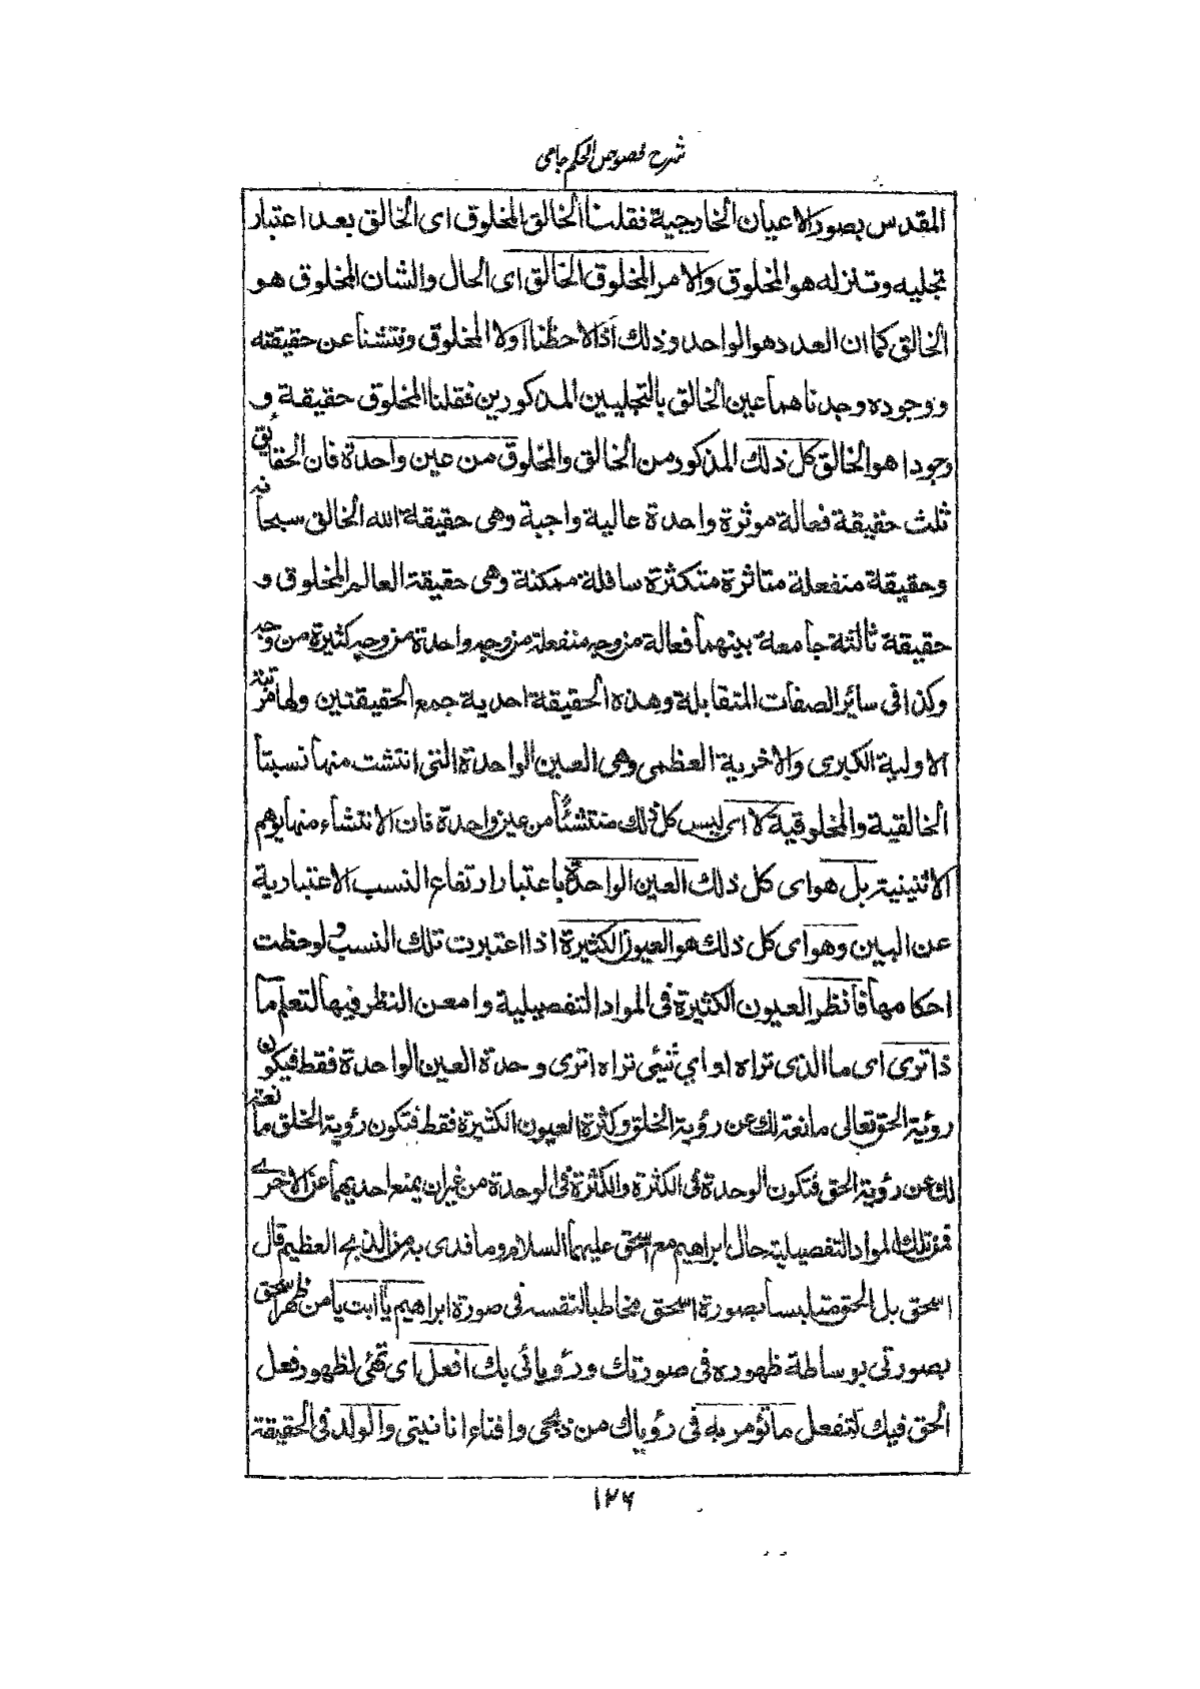 شرح فصوص الحكم جامی
المقدس بصور الاعيان الخارجية فقلنا الخالق المخلوق اى الخالق بعد اعتبار
تجليه وتنزله هو المخلوق والامر المخلوق الخالق اى الحال والشان المخلوق هو
الخالق كما ان العدد هو الواحد وذلك اذا لاحظنا اولا المخلوق ونتشنا عن حقيقته
ووجوده وجدناهما عين الخالق بالتجليين المذكورين فقلنا المخلوق حقيقة و
وجودا هو الخالق كل ذلك المذكور من الخالق والمخلوق من عين واحدة فان الحقائق
ثلث حقيقة فعالة موثرة واحدة عالية واجبة وهى حقيقة الله الخالق سبحانه
وحقيقة منفعلة متاثرة متكثرة سافلة ممكنة وهى حقيقة العالم المخلوق و
حقيقة ثالثة جامعة بينهما فعالة من وجه منفعلة من وجه واحدة من وجه كثيرة من وجه
وكذا فى سائر الصفات المتقابلة وهذه الحقيقة احدية جمع الحقيقتين ولها مرتبة
الاولية الكبرى والاخرية العظمى وهى العين الواحدة التى انتشت منها نسبتا
الخالقية والمخلوقية لا اى ليس كل ذلك منتشئًا من عين واحدة فان الانتشاء منها يوهم
الاثنينية بل هو اى كل ذلك العين الواحدة باعتبار ارتفاع النسب الاعتبارية
عن البين وهو اى كل ذلك هو العيون الكثيرة اذا اعتبرت تلك النسب ولوحظت
احكامها فانظر العيون الكثيرة فى المواد التفصيلية وامعن النظر فيها لتعلم ما
ذا ترى اى ما الذى تراه او اي شئى تراه اترى وحدة العين الواحدة فقط فيكون
رؤية الحق تعالى مانعة لك عن رؤية الخلق وكثرة العيون الكثيرة فقط فتكون رؤية الخلق مانعة
لك عن رؤية الحق فتكون الوحدة فى الكثرة والكثرة فى الوحدة من غير ان يمنع احديهما عن الاخرى
فمن تلك المواد التفصيلية حال ابراهيم مع اسحق عليهما السلام وما فدى به من الذبح العظيم قال
اسحق بل الحق متلبسا بصورة اسحق مخاطبا لنفسه فى صورة ابراهيم يا ابت يا من ظهر اسحق
بصورتى بوساطة ظهوره فى صورتك ورؤيائى بك افعل اى تهئى لظهور فعل
الحق فيك لتفعل ما تؤمر به فى رؤياك من ذبحى وافناء انانيتى والولد فى الحقيقة
١٢٦